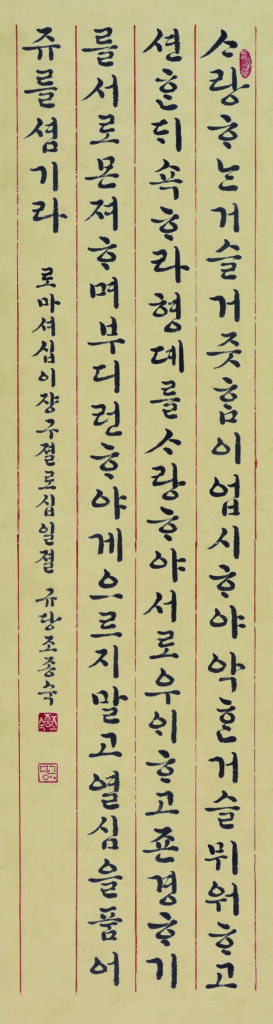 ᄉᆞ랑ᄒᆞᄂᆞᆫ거슬거즛ᄒᆞᆷ이업시ᄒᆞ야악ᄒᆞᆫ거슬뮈워ᄒᆞ고
션ᄒᆞᆫᄃᆡ쇽ᄒᆞ라형뎨를ᄉᆞ랑ᄒᆞ야서로우ᄋᆡᄒᆞ고죤경ᄒᆞ기
를서로몬져ᄒᆞ며부디런ᄒᆞ야게으르지말고열심을품어
쥬를셤기라 로마셔십이쟝구졀로십일졀 규당조종숙